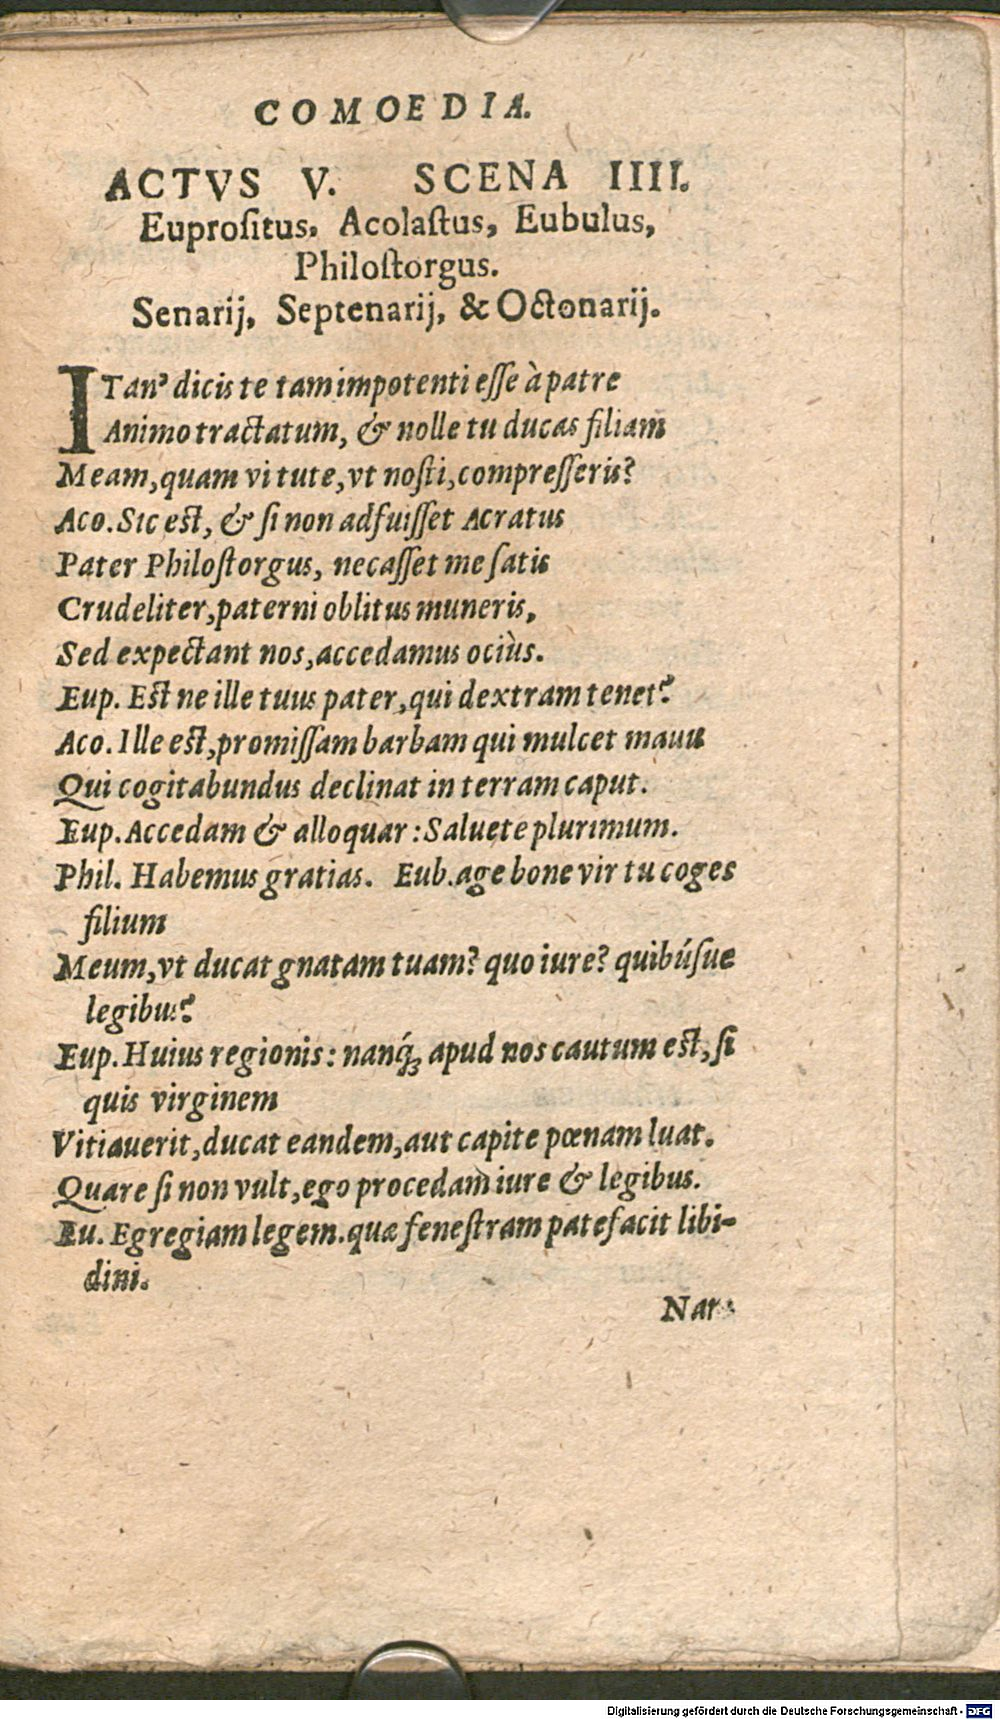 COMOEDIA.
ACTVS V. SCENA IIII.
Euproſitus, Acolaſtus, Eubulus,
Philoſtorgus.
Senarij, Septenarij, & Octonarij.
ITan' dicis te tam impotenti eſſe à patre
Animo tractatum, & nolle tu ducas filiam
Meam, quam vi tute, vt noſti, compreſſeris?
Aco. Sic eſt, & ſi non adfuiſſet Acratus
Pater Philoſtorgus, necaſſet me ſatis
Crudeliter, paterni oblitus muneris,
Sed expectant nos, accedamus ociùs.
Eup. Eſt ne ille tuus pater, qui dextram tenet?
Aco. Ille eſt, promiſſam barbam qui mulcet manu
Qui cogitabundus declinat in terram caput.
Eup. Accedam & alloquar: Saluete plurimum.
Phil. Habemus gratias. Eub. age bone vir tu coges
filium
Meum, vt ducat gnatam tuam? quo iure? quibúſue
legibus?
Eup. Huius regionis: nanq́; apud nos cautum eſt, ſi
quis virginem
Vitiauerit, ducat eandem, aut capite pœnam luat.
Quare ſi non vult, ego procedam iure & legibus.
Eu. Egregiam legem. quæ feneſtram patefacit libi-
dini.
Nar-
Digitalisierung gefördert durch die Deutsche Forschungsgemeinschaft - DFG